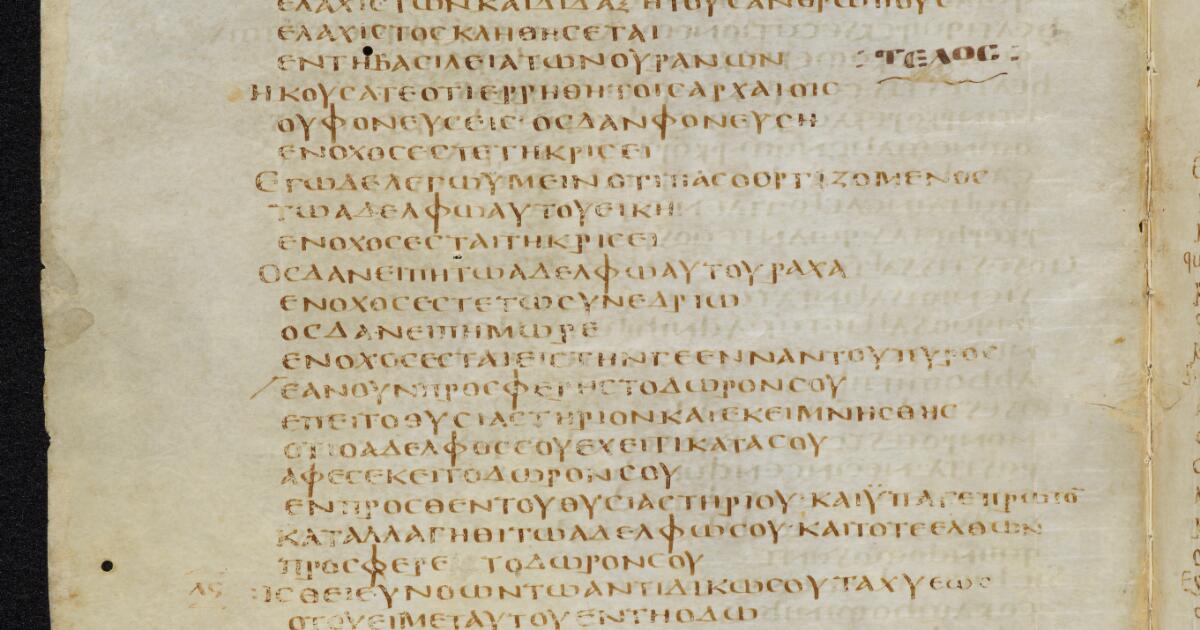 ΕΛΑΧΙCΤΩΝΚΑΙΔΙΔΑΞΗΤΟΥCΑΝΘΡΩΠΟΥC
ΕΛΑΧΙCΤΟCΚΛΗΘΗCΕΤΑΙ
ΕΝΤΗΒΑCΙΛΕΙΑΤΩΝΟΥΡΑΝΩΝ ΤΕΛΟC
ΗΚΟΥCΑΤΕΟΤΙΕΡΡΗΘΗΤΟΙCΑΡΧΑΙΟΙC
ΟΥΦΟΝΕΥCΕΙC·ΟCΔΑΝΦΟΝΕΥCΗ
ΕΝΟΧΟCΕCΤΕΤΗΚΡΙCΕΙ
ΕΓΩΔΕΛΕΓΩΥΜΕΙΝΟΤΙΠΑCΟΟΡΓΙΖΟΜΕΝΟC
ΤΩΑΔΕΛΦΩΑΥΤΟΥΕΙΚΗ
ΕΝΟΧΟCΕCΤΑΙΤΗΚΡΙCΕΙ
ΟCΔΑΝΕΙΠΗΤΩΑΔΕΛΦΩΑΥΤΟΥΡΑΧΑ
ΕΝΟΧΟCΕCΤΕΤΩCΥΝΕΔΡΙΩ
ΟCΔΑΝΕΙΠΗΜΩΡΕ
ΕΝΟΧΟCΕCΤΑΙΕΙCΤΗΝΓΕΕΝΝΑΝΤΟΥΠΥΡΟC
ΕΑΝΟΥΝΠΡΟCΦΕΡΗCΤΟΔΩΡΟΝCΟΥ
ΕΠΕΙΤΟΘΥCΙΑCΤΗΡΙΟΝΚΑΙΕΚΕΙΜΝΗCΘΗC
ΟΤΙΟΑΔΕΛΦΟCCΟΥΕΧΕΙΤΙΚΑΤΑCΟΥ
ΑΦΕCΕΚΕΙΤΟΔΩΡΟΝCΟΥ
ΕΝΠΡΟCΘΕΝΤΟΥΘΥCΙΑCΤΗΡΙΟΥ·ΚΑΙΫΠΑΓΕΠΡΩΤΟ̅
ΚΑΤΑΛΛΑΓΗΘΙΤΩΑΔΕΛΦΩCΟΥ·ΚΑΙΤΟΤΕΕΛΘΩΝ
ΠΡΟCΦΕΡΕ ΤΟΔΩΡΟΝCΟΥ
ΙCΘΕΙΕΥΝΟΩΝΤΩΑΝΤΙΔΙΚΩCΟΥΤΑΧΥΕΩC
ΟΤΟΥΕΙΜΕΤΑΥΤΟΥΕΝΤΗΟΔΩ